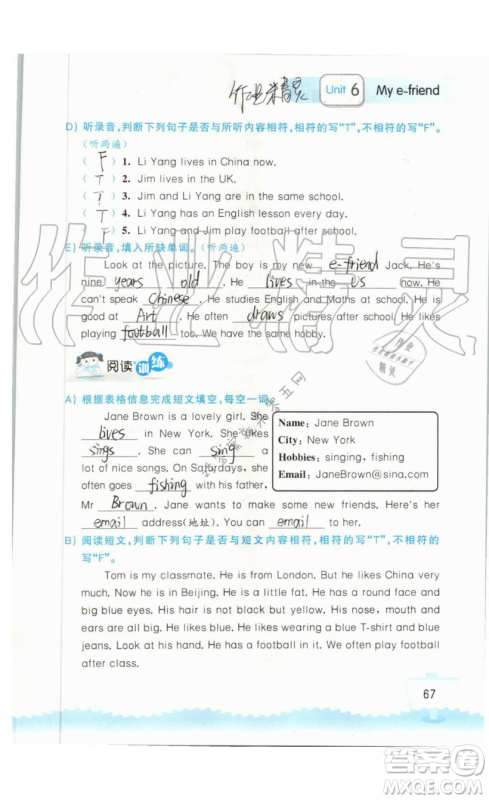 作业精灵 Unit 6 My e-friend
D) 听录音，判断下列句子是否与所听内容相符，相符的写“T”，不相符的写“F”。
（听两遍）
( F ) 1. Li Yang lives in China now.
( T ) 2. Jim lives in the UK.
( T ) 3. Jim and Li Yang are in the same school.
( T ) 4. Li Yang has an English lesson every day.
( F ) 5. Li Yang and Jim play football after school.
E) 听录音，填入所缺单词。（听两遍）
Look at the picture. The boy is my new e-friend Jack. He's
nine years old. He lives in the US now. He
can't speak Chinese. He studies English and Maths at school. He is
good at Art. He often draws pictures after school. He likes
playing football too. We have the same hobby.
阅读训练
A) 根据表格信息完成短文填空，每空一词。
Jane Brown is a lovely girl. She
lives in New York. She likes
sings. She can sing a
lot of nice songs. On Saturdays, she
often goes fishing with her father,
Name: Jane Brown
City: New York
Hobbies: singing, fishing
Email: JaneBrown@sina.com
Mr Brown. Jane wants to make some new friends. Here's her
email address(地址). You can email to her.
B) 阅读短文，判断下列句子是否与短文内容相符，相符的写“T”，不相符的
写“F”。
Tom is my classmate. He is from London. But he likes China very
much. Now he is in Beijing. He is a little fat. He has a round face and
big blue eyes. His hair is not black but yellow. His nose, mouth and
ears are all big. He likes wearing a big blue T-shirt and blue
jeans. Look at his hand. He has a football in it. We often play football
after class.
67
作业精灵
答案圈